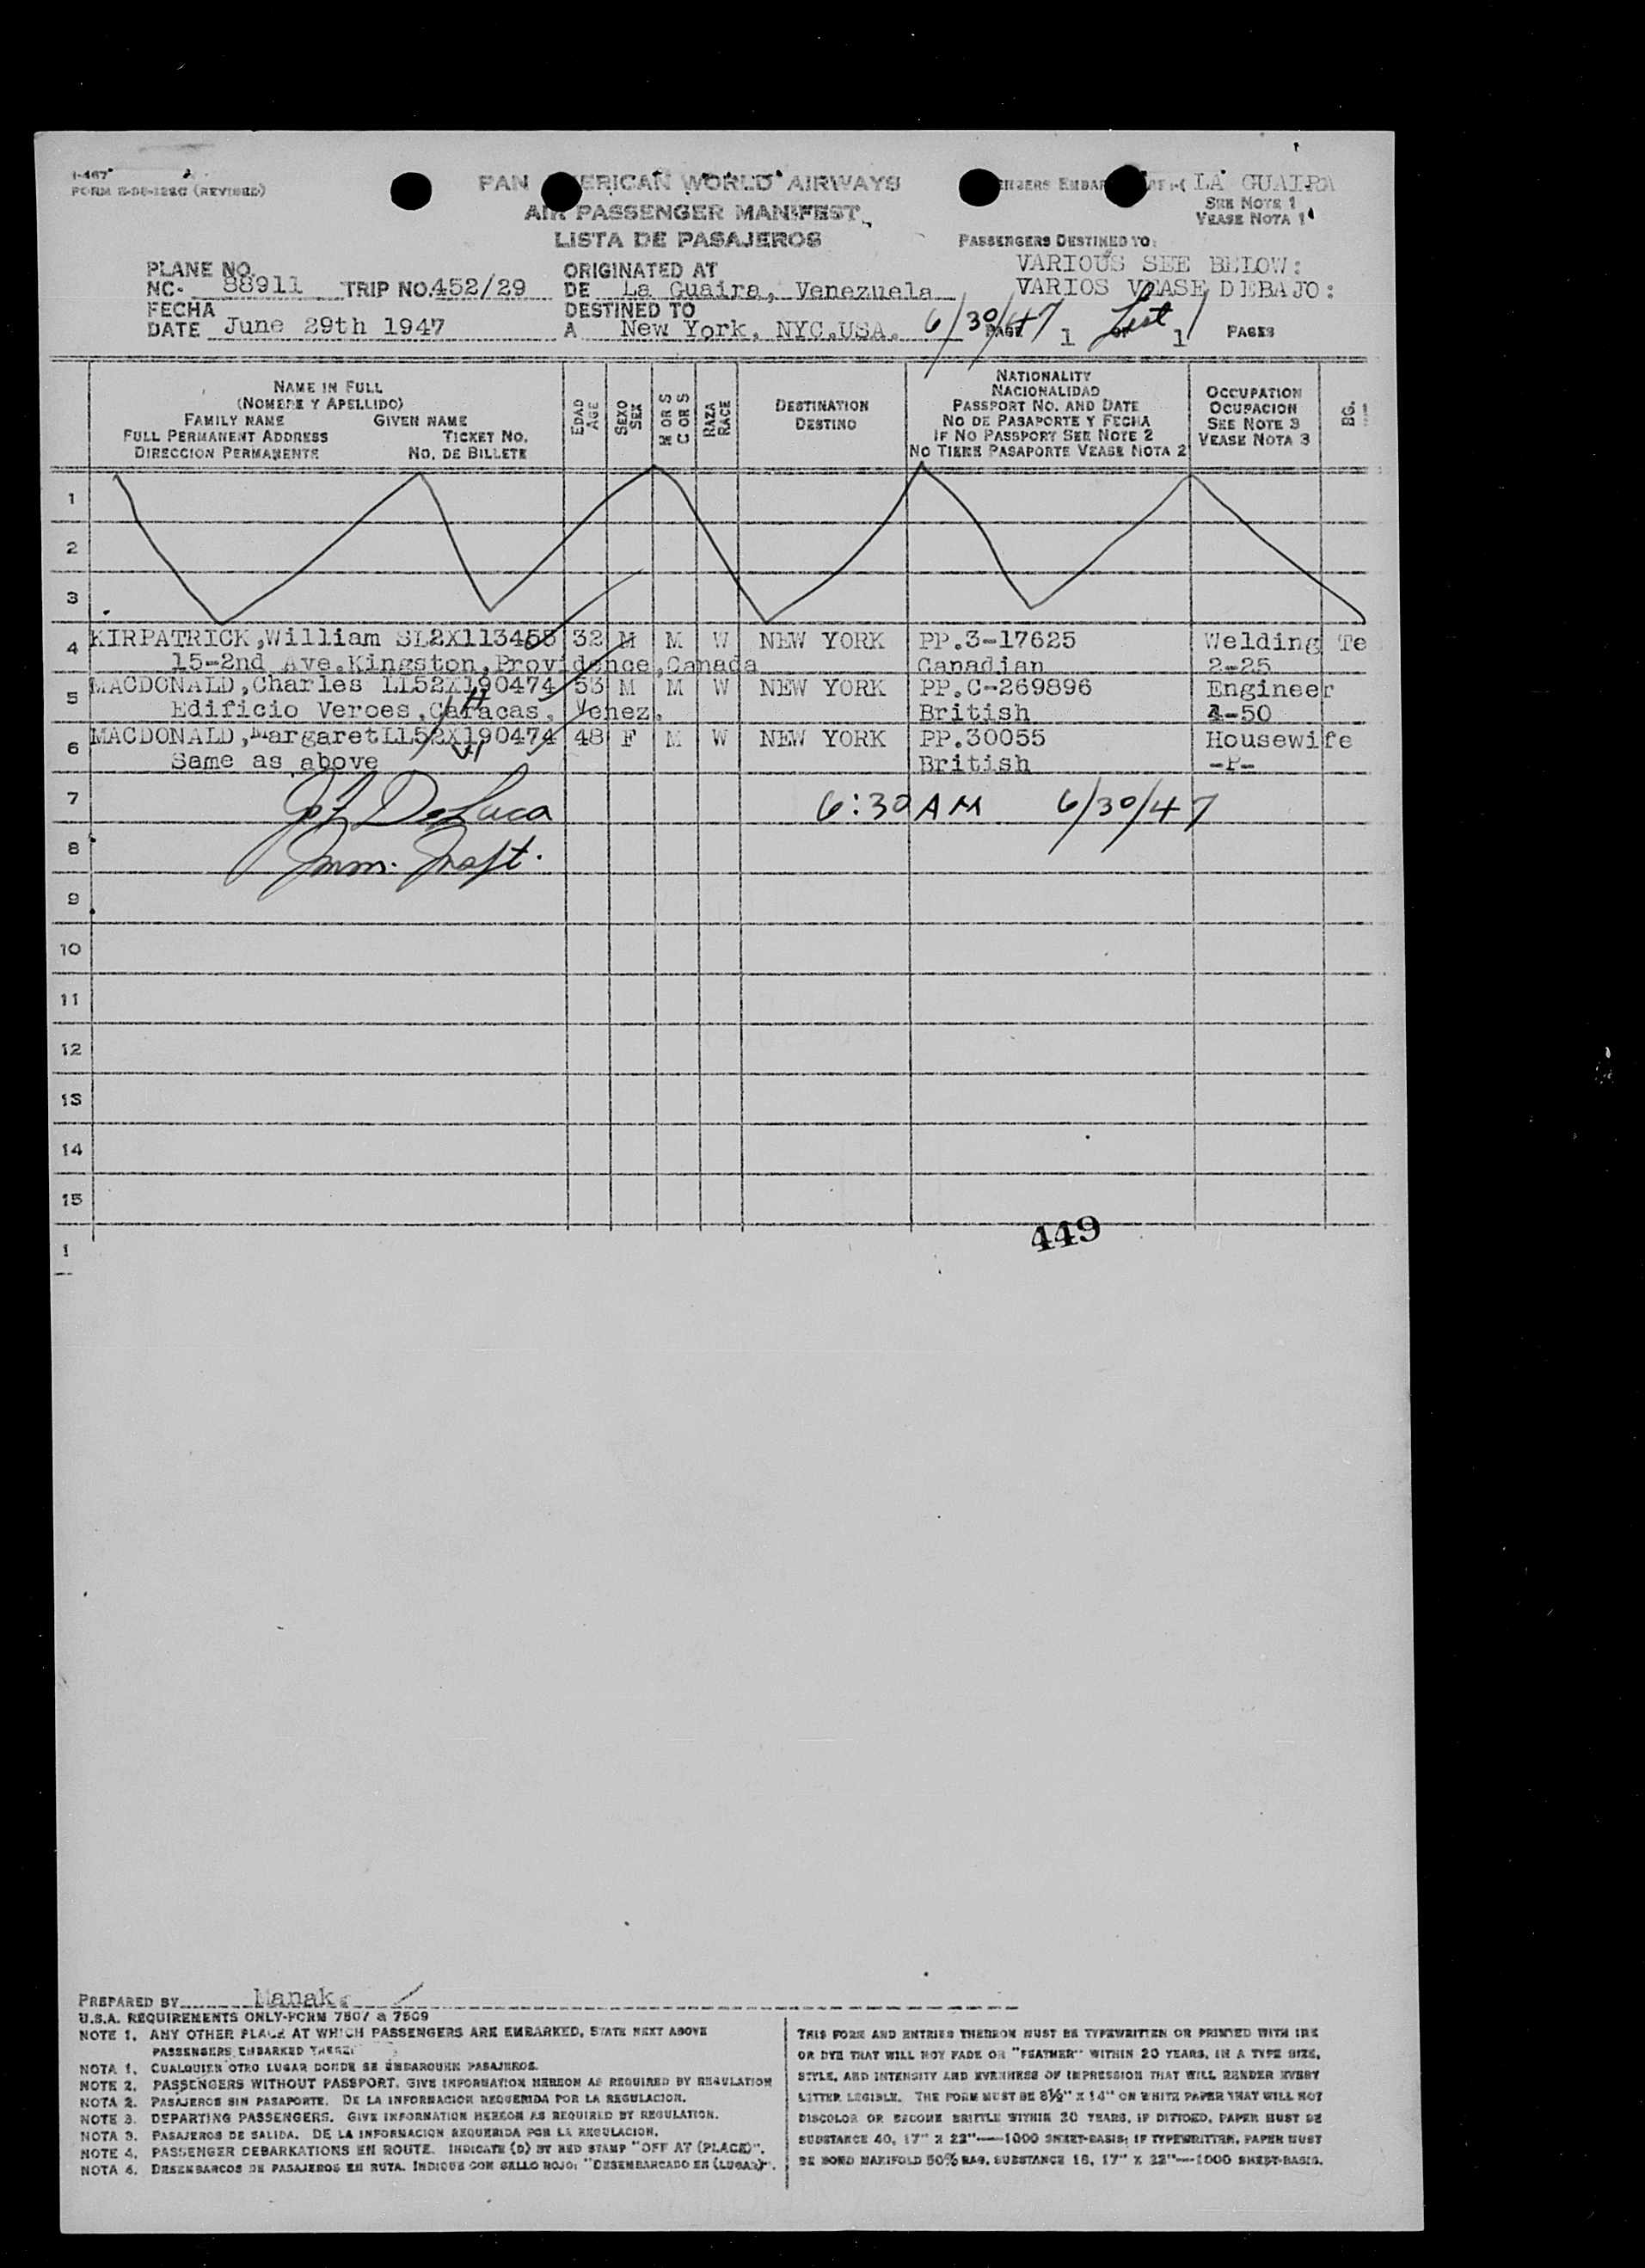 1-467
FORM (REVISED)
PAN AMERICAN WORLD AIRWAYS
AIR PASSENGER MANIFEST
LISTA DE PASAJEROS
LA GUAIRA
SEE NOTE 1
VEASE NOTA 1
PASSENGERS DESTINED TO:
VARIOUS SEE BELOW:
VARIOS VEASE DEBAJO:
PLANE NO.
NC- 88911 TRIP NO. 452/29
FECHA
DATE June 29th 1947
ORIGINATED AT
DE La Guaira, Venezuela
DESTINED TO
A New York, NYC.USA.
6/30/47 List 1
PAGE 1 OF 1 PAGES
NAME IN FULL
(NOMBRE Y APELLIDO)
FAMILY NAME GIVEN NAME
FULL PERMANENT ADDRESS TICKET NO.
DIRECCION PERMANENTE NO. DE BILLETE
EDAD
AGE
SEXO
SEX
M OR S
C OR S
RAZA
RACE
DESTINATION
DESTINO
NATIONALITY
NACIONALIDAD
PASSPORT NO. AND DATE
NO DE PASAPORTE Y FECHA
IF NO PASSPORT SEE NOTE 2
NO TIENE PASAPORTE VEASE NOTA 2
OCCUPATION
OCUPACION
SEE NOTE 3
VEASE NOTA 3
BG.
1
2
3
4 KIRPATRICK,William SL2X113455 32 M M W NEW YORK PP.3-17625 Welding Te
15-2nd Ave.Kingston,Providence,Canada Canadian 2-25
5 MACDONALD,Charles LL52X190474 53 M M W NEW YORK PP.C-269896 Engineer
Edificio Veroes,Caracas, Venez. British 4-50
6 MACDONALD,Margaret LL52X190474 48 F M W NEW YORK PP.30055 Housewife
Same as above British -P-
7 Jos. DeLuca 6:30 AM 6/30/47
8 Imm. Inspt.
9
10
11
12
13
14
15
449
1
PREPARED BY Manak
U.S.A. REQUIREMENTS ONLY-FORM 7507 & 7509
NOTE 1. ANY OTHER PLACE AT WHICH PASSENGERS ARE EMBARKED, STATE NEXT ABOVE
PASSENGERS EMBARKED THERE:
NOTA 1. CUALQUIER OTRO LUGAR DONDE SE EMBARQUEN PASAJEROS.
NOTE 2. PASSENGERS WITHOUT PASSPORT. GIVE INFORMATION HEREON AS REQUIRED BY REGULATION
NOTA 2. PASAJEROS SIN PASAPORTE. DE LA INFORMACION REQUERIDA POR LA REGULACION.
NOTE 3. DEPARTING PASSENGERS. GIVE INFORMATION HEREON AS REQUIRED BY REGULATION.
NOTA 3. PASAJEROS DE SALIDA. DE LA INFORMACION REQUERIDA POR LA REGULACION.
NOTE 4. PASSENGER DEBARKATIONS EN ROUTE. INDICATE (D) BY RED STAMP "OFF AT (PLACE)".
NOTA 4. DESEMBARCOS DE PASAJEROS EN RUTA. INDIQUE CON SELLO ROJO: "DESEMBARCADO EN (LUGAR)".
THIS FORM AND ENTRIES THEREON MUST BE TYPEWRITTEN OR PRINTED WITH INK
OR DYE THAT WILL NOT FADE OR "FEATHER" WITHIN 20 YEARS, IN A TYPE SIZE,
STYLE, AND INTENSITY AND EVENNESS OF IMPRESSION THAT WILL RENDER EVERY
LETTER LEGIBLE. THE FORM MUST BE 8½" X 14" ON WHITE PAPER THAT WILL NOT
DISCOLOR OR BECOME BRITTLE WITHIN 20 YEARS, IF DITTOED, PAPER MUST BE
SUBSTANCE 40, 17" X 22"—1000 SHEET-BASIS; IF TYPEWRITTEN, PAPER MUST
BE BOND MANIFOLD 50% RAG, SUBSTANCE 16, 17" X 22"—1000 SHEET-BASIS.